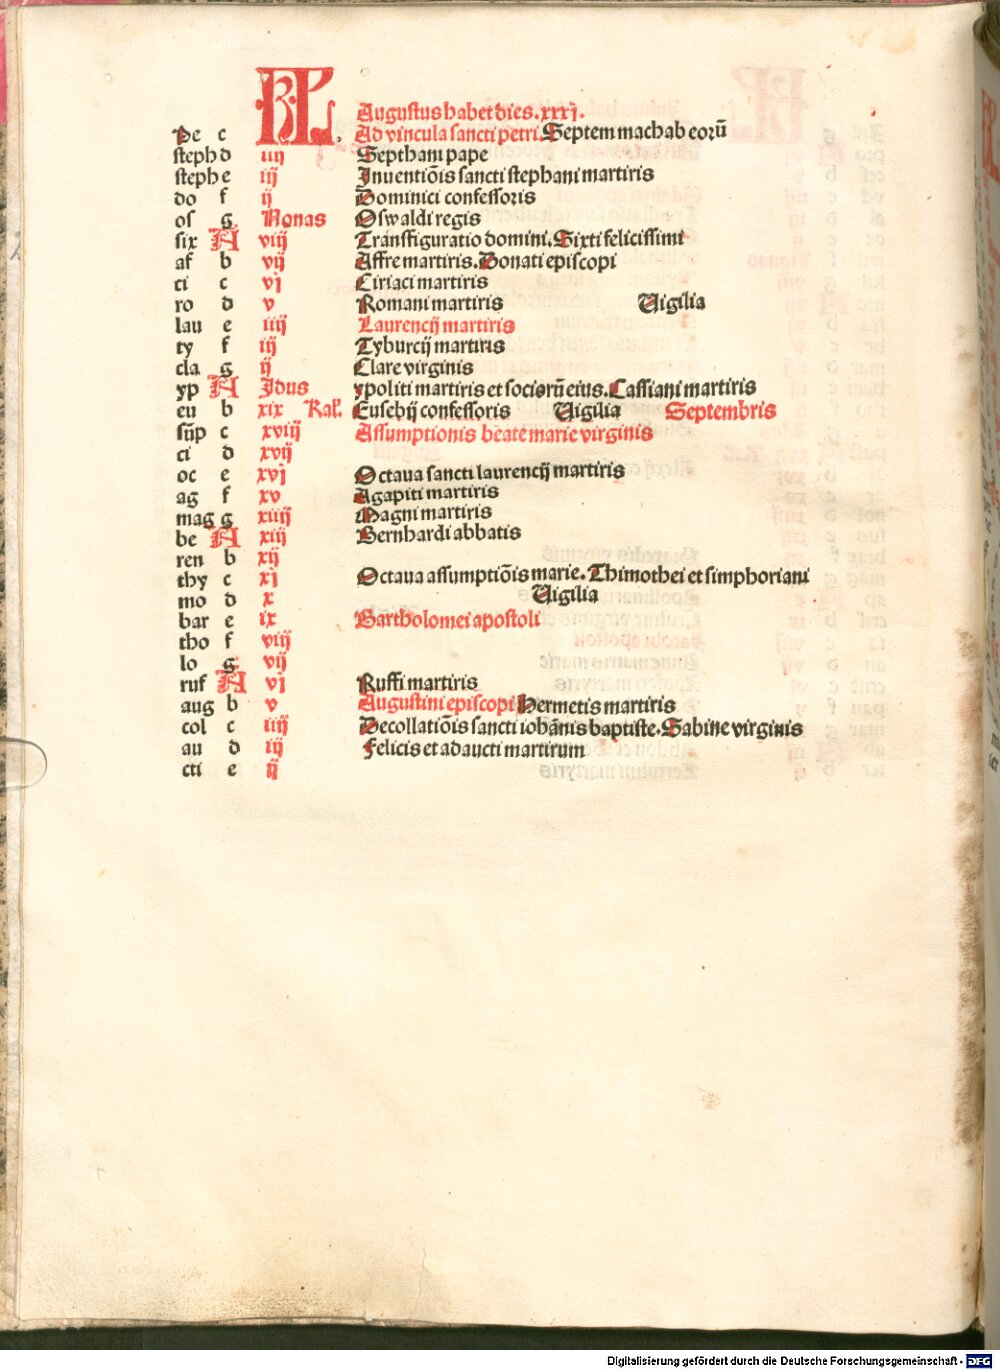 KL Augustus habet dies. xxxj.
Pe c Ad vincula sancti petri. Septem machabeorū
steph d iiij Stephani pape
steph e iij Inuentiōis sancti stephani martiris
do f ij Dominici confessoris
os g Nonas Oswaldi regis
six A viij Transfiguratio domini. Sixti felicissimi
af b vij Affre martiris. Donati episcopi
ci c vj Ciriaci martiris
ro d v Romani martiris Vigilia
lau e iiij Laurencij martiris
ty f iij Tyburcij martiris
cla g ij Clare virginis
yp A Idus ypoliti martiris et sociorū eius. Cassiani martiris
eu b xix Kal'. Eusebij confessoris Vigilia Septembris
sūp c xviij Assumptionis beate marie virginis
ci d xvij
oc e xvj Octaua sancti laurencij martiris
ag f xv Agapiti martiris
mag g xiiij Magni martiris
be A xiij Bernhardi abbatis
ren b xij
thy c xj Octaua assumptiōis marie. Thimothei et simphoriani
mo d x Vigilia
bar e ix Bartholomei apostoli
tho f viij
lo g vij
ruf A vj Ruffi martiris
aug b v Augustini episcopi Hermetis martiris
col c iiij Decollatiōis sancti iohānis baptiste. Sabine virginis
au d iij Felicis et adaucti martirum
cti e ij
Digitalisierung gefördert durch die Deutsche Forschungsgemeinschaft - DFG